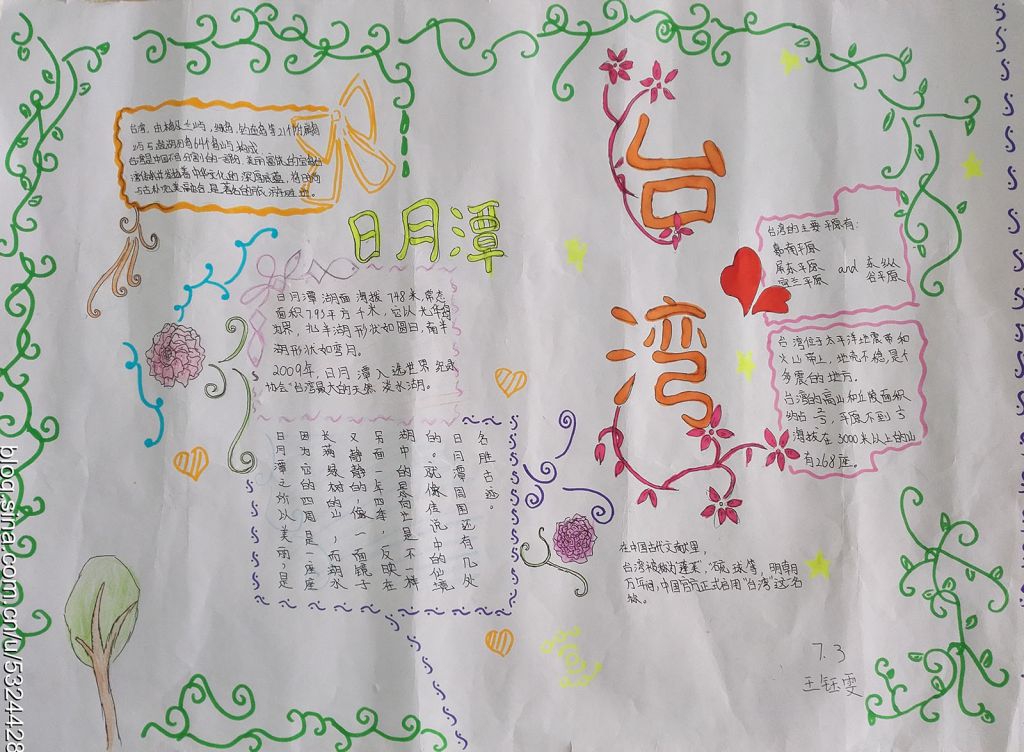 台湾
日月潭
台湾，由
台湾是中国不可分割的一部分，美丽富饶的宝岛台
湾传承并发扬着中华文化的深厚底蕴，将
与古朴完美融合，是著名的旅游胜地。
日月潭湖面海拔748米，常态
面积7.93平方千米，它以光华岛
为界，北半湖形状如圆日，南半
湖形状如弯月。
2009年，日月潭入选世界纪录
协会"台湾最大的天然淡水湖。
日月潭之所以美丽，是
因为它的四周是一座座
长满绿树的山，而湖水
又静静的像一面镜子
年四季，反映在
湖面的景是不一样
的。就像传说中的仙境
日月潭周围还有几处
名胜古迹。
台湾的主要平原有：
嘉南平原
屏东平原 and 东纵
宜兰平原 谷平原
台湾位于太平洋地震带和
火山带上，地壳不稳，是个
多震的地方。
台湾的高山和丘陵面积
约占2/3，平原不到1/3
海拔在3000米以上的山
有268座。
在中国古代文献里，
台湾被称为"蓬莱"，琉球等，明朝
万年间，中国官方正式启用"台湾"这名
称。
7.3
王钰雯
blog.sina.com.cn/u/53244428